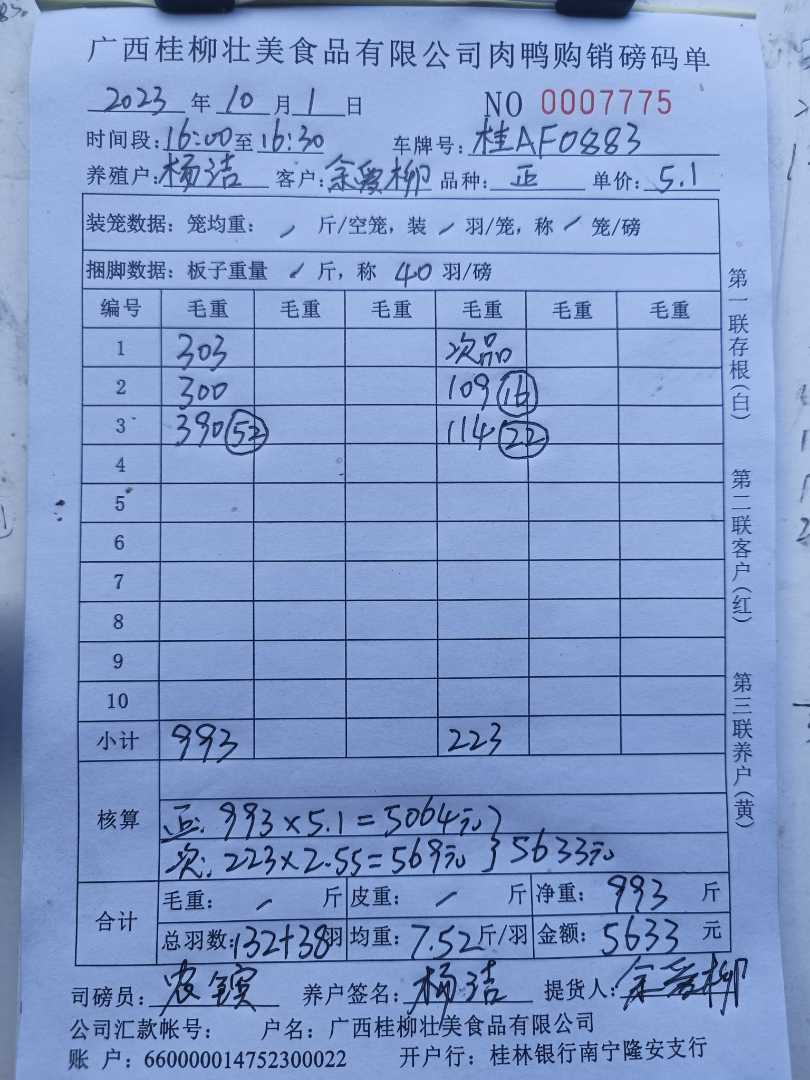 广西桂柳壮美食品有限公司肉鸭购销磅码单
2023 年 10 月 1 日 NO 0007775
时间段: 16:00 至 16:30 车牌号: 桂AF0883
养殖户: 杨洁 客户: 余爱柳 品种: 正 单价: 5.1
装笼数据: 笼均重: / 斤/空笼, 装 / 羽/笼, 称 / 笼/磅
捆脚数据: 板子重量 / 斤, 称 40 羽/磅
编号 毛重 毛重 毛重 毛重 毛重 毛重
1 303 次品
2 300 109 16
3 390 52 114 22
4
5
6
7
8
9
10
小计 993 223
核算
正: 993×5.1=5064元
次: 223×2.55=569元 } 5633元
合计
毛重: / 斤 皮重: / 斤 净重: 993 斤
总羽数: 132+38 羽 均重: 7.52 斤/羽 金额: 5633 元
司磅员: 养户签名: 杨洁 提货人: 余爱柳
公司汇款帐号: 户名: 广西桂柳壮美食品有限公司
账 户: 660000014752300022 开户行: 桂林银行南宁隆安支行
第一联存根(白)
第二联客户(红)
第三联养户(黄)